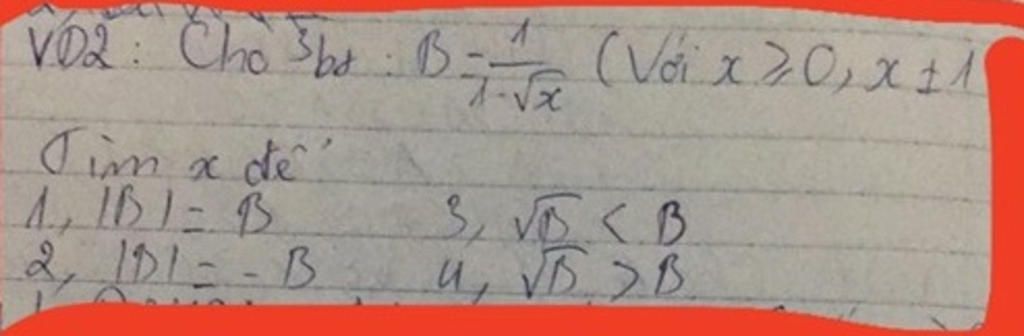 VD2: Cho bt: B = 1/(1-√x) (Với x ≥ 0, x ± 1
Tìm x để
1, |B| = B 3, √B < B
2, |B| = - B 4, √B > B